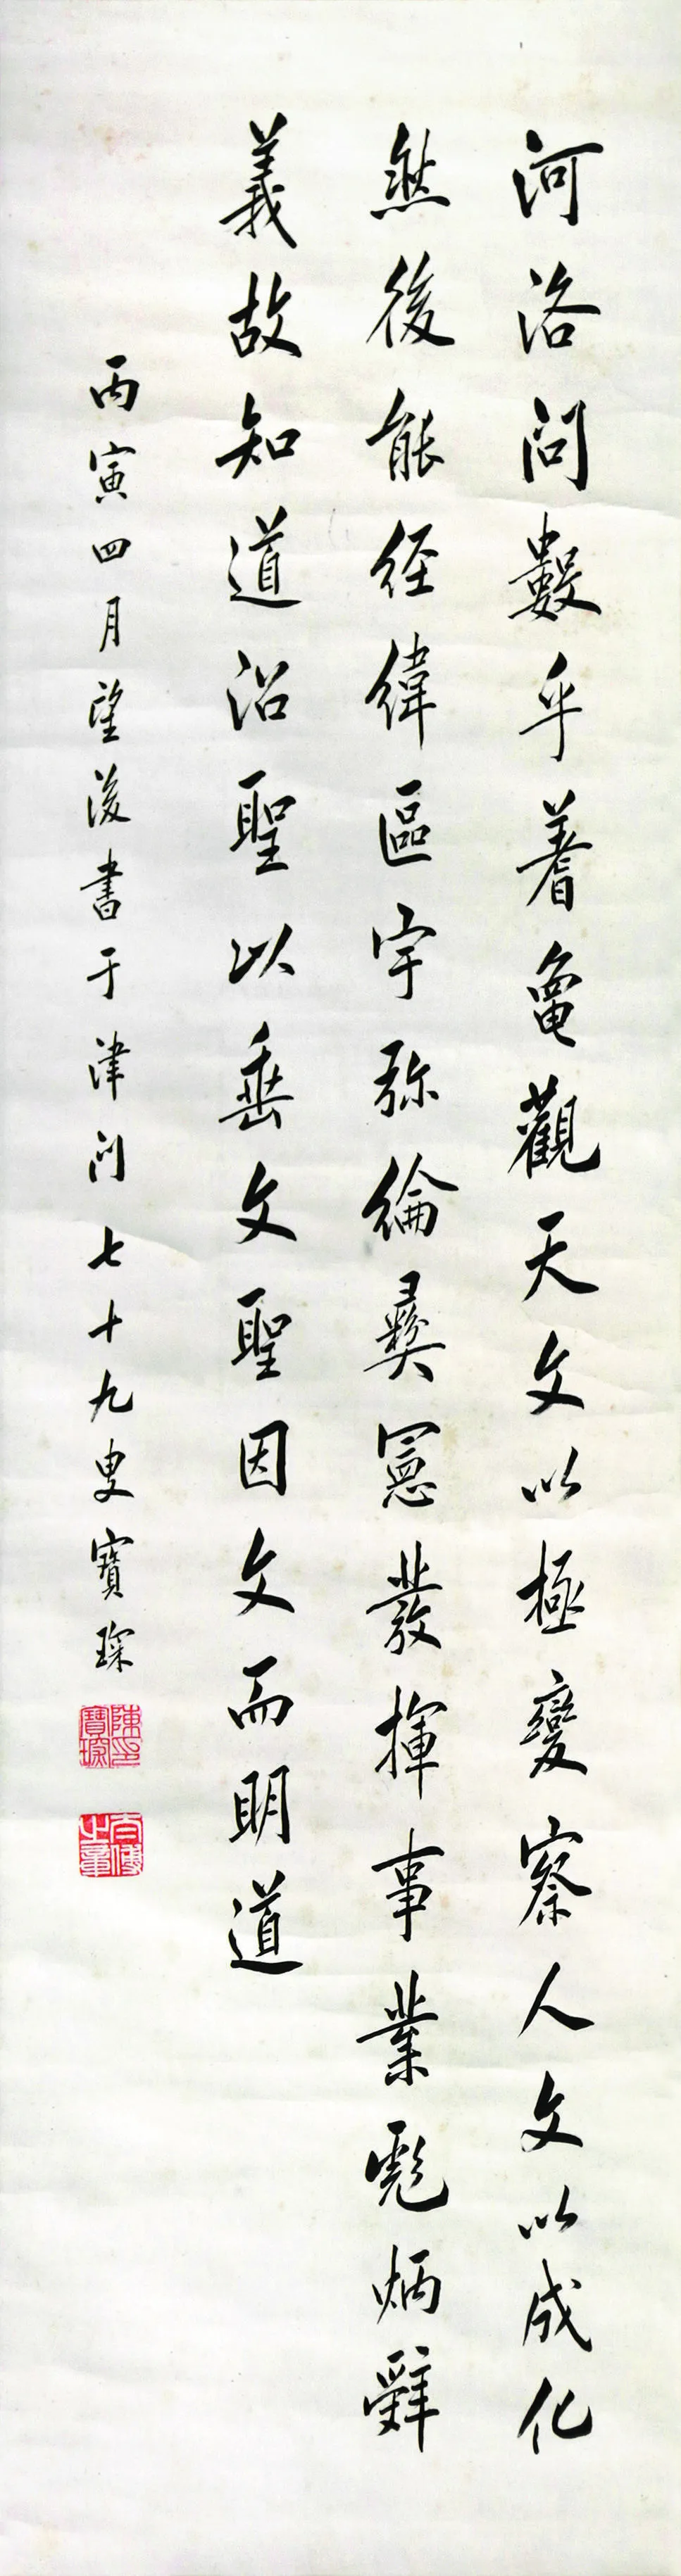 河洛問數乎蓍龜觀天文以極變察人文以成化
然後能経緯區宇弥綸彝憲發揮事業彪炳辭
義故知道沿聖以垂文聖因文而明道
丙寅四月望後書于津门七十九叟寶琛
陳印寶琛
太傅之章